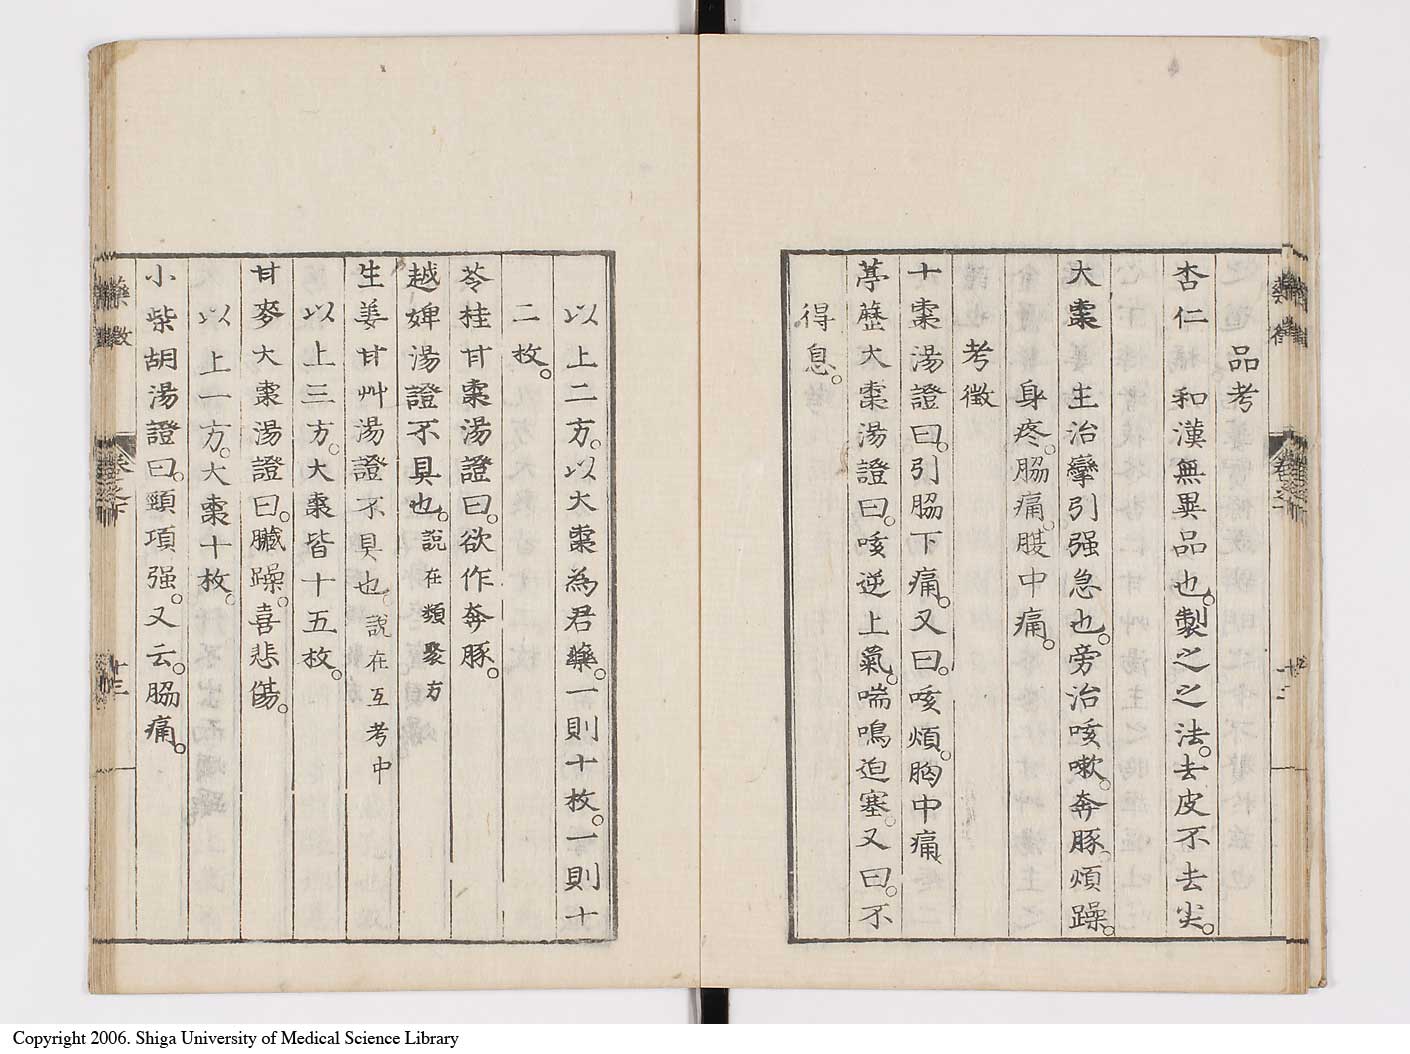 品考
杏仁 和漢無異品也。製之之法。去皮不去尖。
大棗 主治攣引强急也。旁治咳嗽。奔豚。煩躁。
身疼。脇痛。腹中痛。
考徵
十棗湯證曰。引脇下痛。又曰。咳煩。胸中痛
葶藶大棗湯證曰。咳逆上氣。喘鳴迫塞。又曰。不
得息。
以上二方。以大棗為君藥。一則十枚。一則十
二枚。
苓桂甘棗湯證曰。欲作奔豚。
越婢湯證不具也。説在類聚方
生姜甘艸湯證不具也。説在互考中
以上三方。大棗皆十五枚。
甘麥大棗湯證曰。臟躁。喜悲傷。
以上一方。大棗十枚。
小柴胡湯證曰。頸項强。又云。脇痛。
十三
Copyright 2006. Shiga University of Medical Science Library